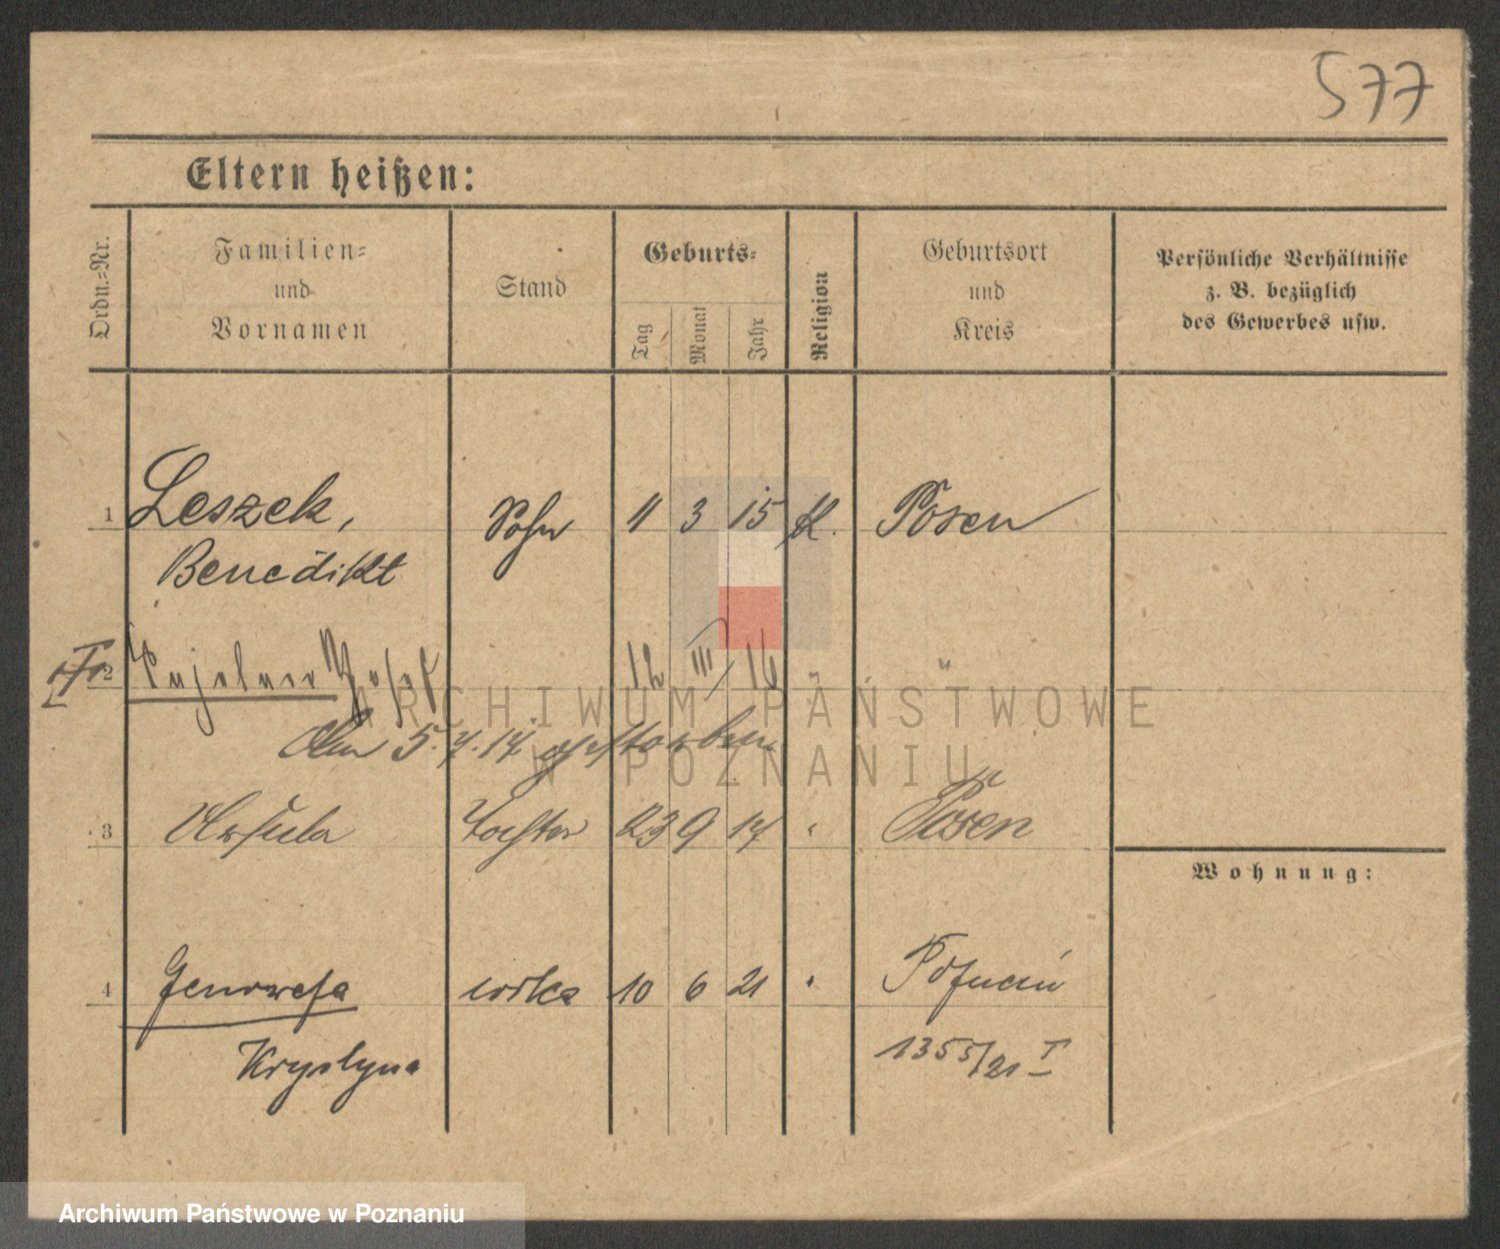 577
Eltern heißen:
Ordn.-Nr.
Familien-
und
Vornamen
Stand
Geburts-
Tag
Monat
Jahr
Religion
Geburtsort
und
Kreis
Persönliche Verhältnisse
z. B. bezüglich
des Gewerbes usw.
1 Leszek, Sohn 11 3 15 k. Posen
Benedikt
2 Josef 12 III 16 " "
Am 5.4.17 gestorben
3 Ursula Tochter 23 9 17 " Posen
Wohnung:
4 Genowefa córka 10 6 21 " Poznań
Krystyna
1355/21 I
ARCHIWUM PAŃSTWOWE
W POZNANIU
Archiwum Państwowe w Poznaniu